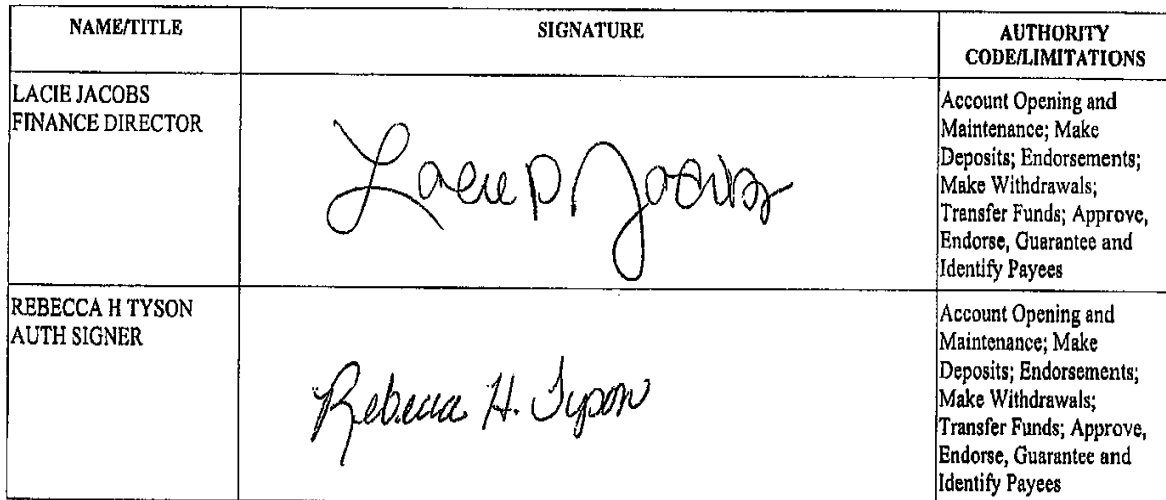 NAME/TITLE
SIGNATURE
AUTHORITY
CODE/LIMITATIONS
LACIE JACOBS
FINANCE DIRECTOR
Lacie P Jacobs
Account Opening and
Maintenance; Make
Deposits; Endorsements;
Make Withdrawals;
Transfer Funds; Approve,
Endorse, Guarantee and
Identify Payees
REBECCA H TYSON
AUTH SIGNER
Rebecca H. Tyson
Account Opening and
Maintenance; Make
Deposits; Endorsements;
Make Withdrawals;
Transfer Funds; Approve,
Endorse, Guarantee and
Identify Payees